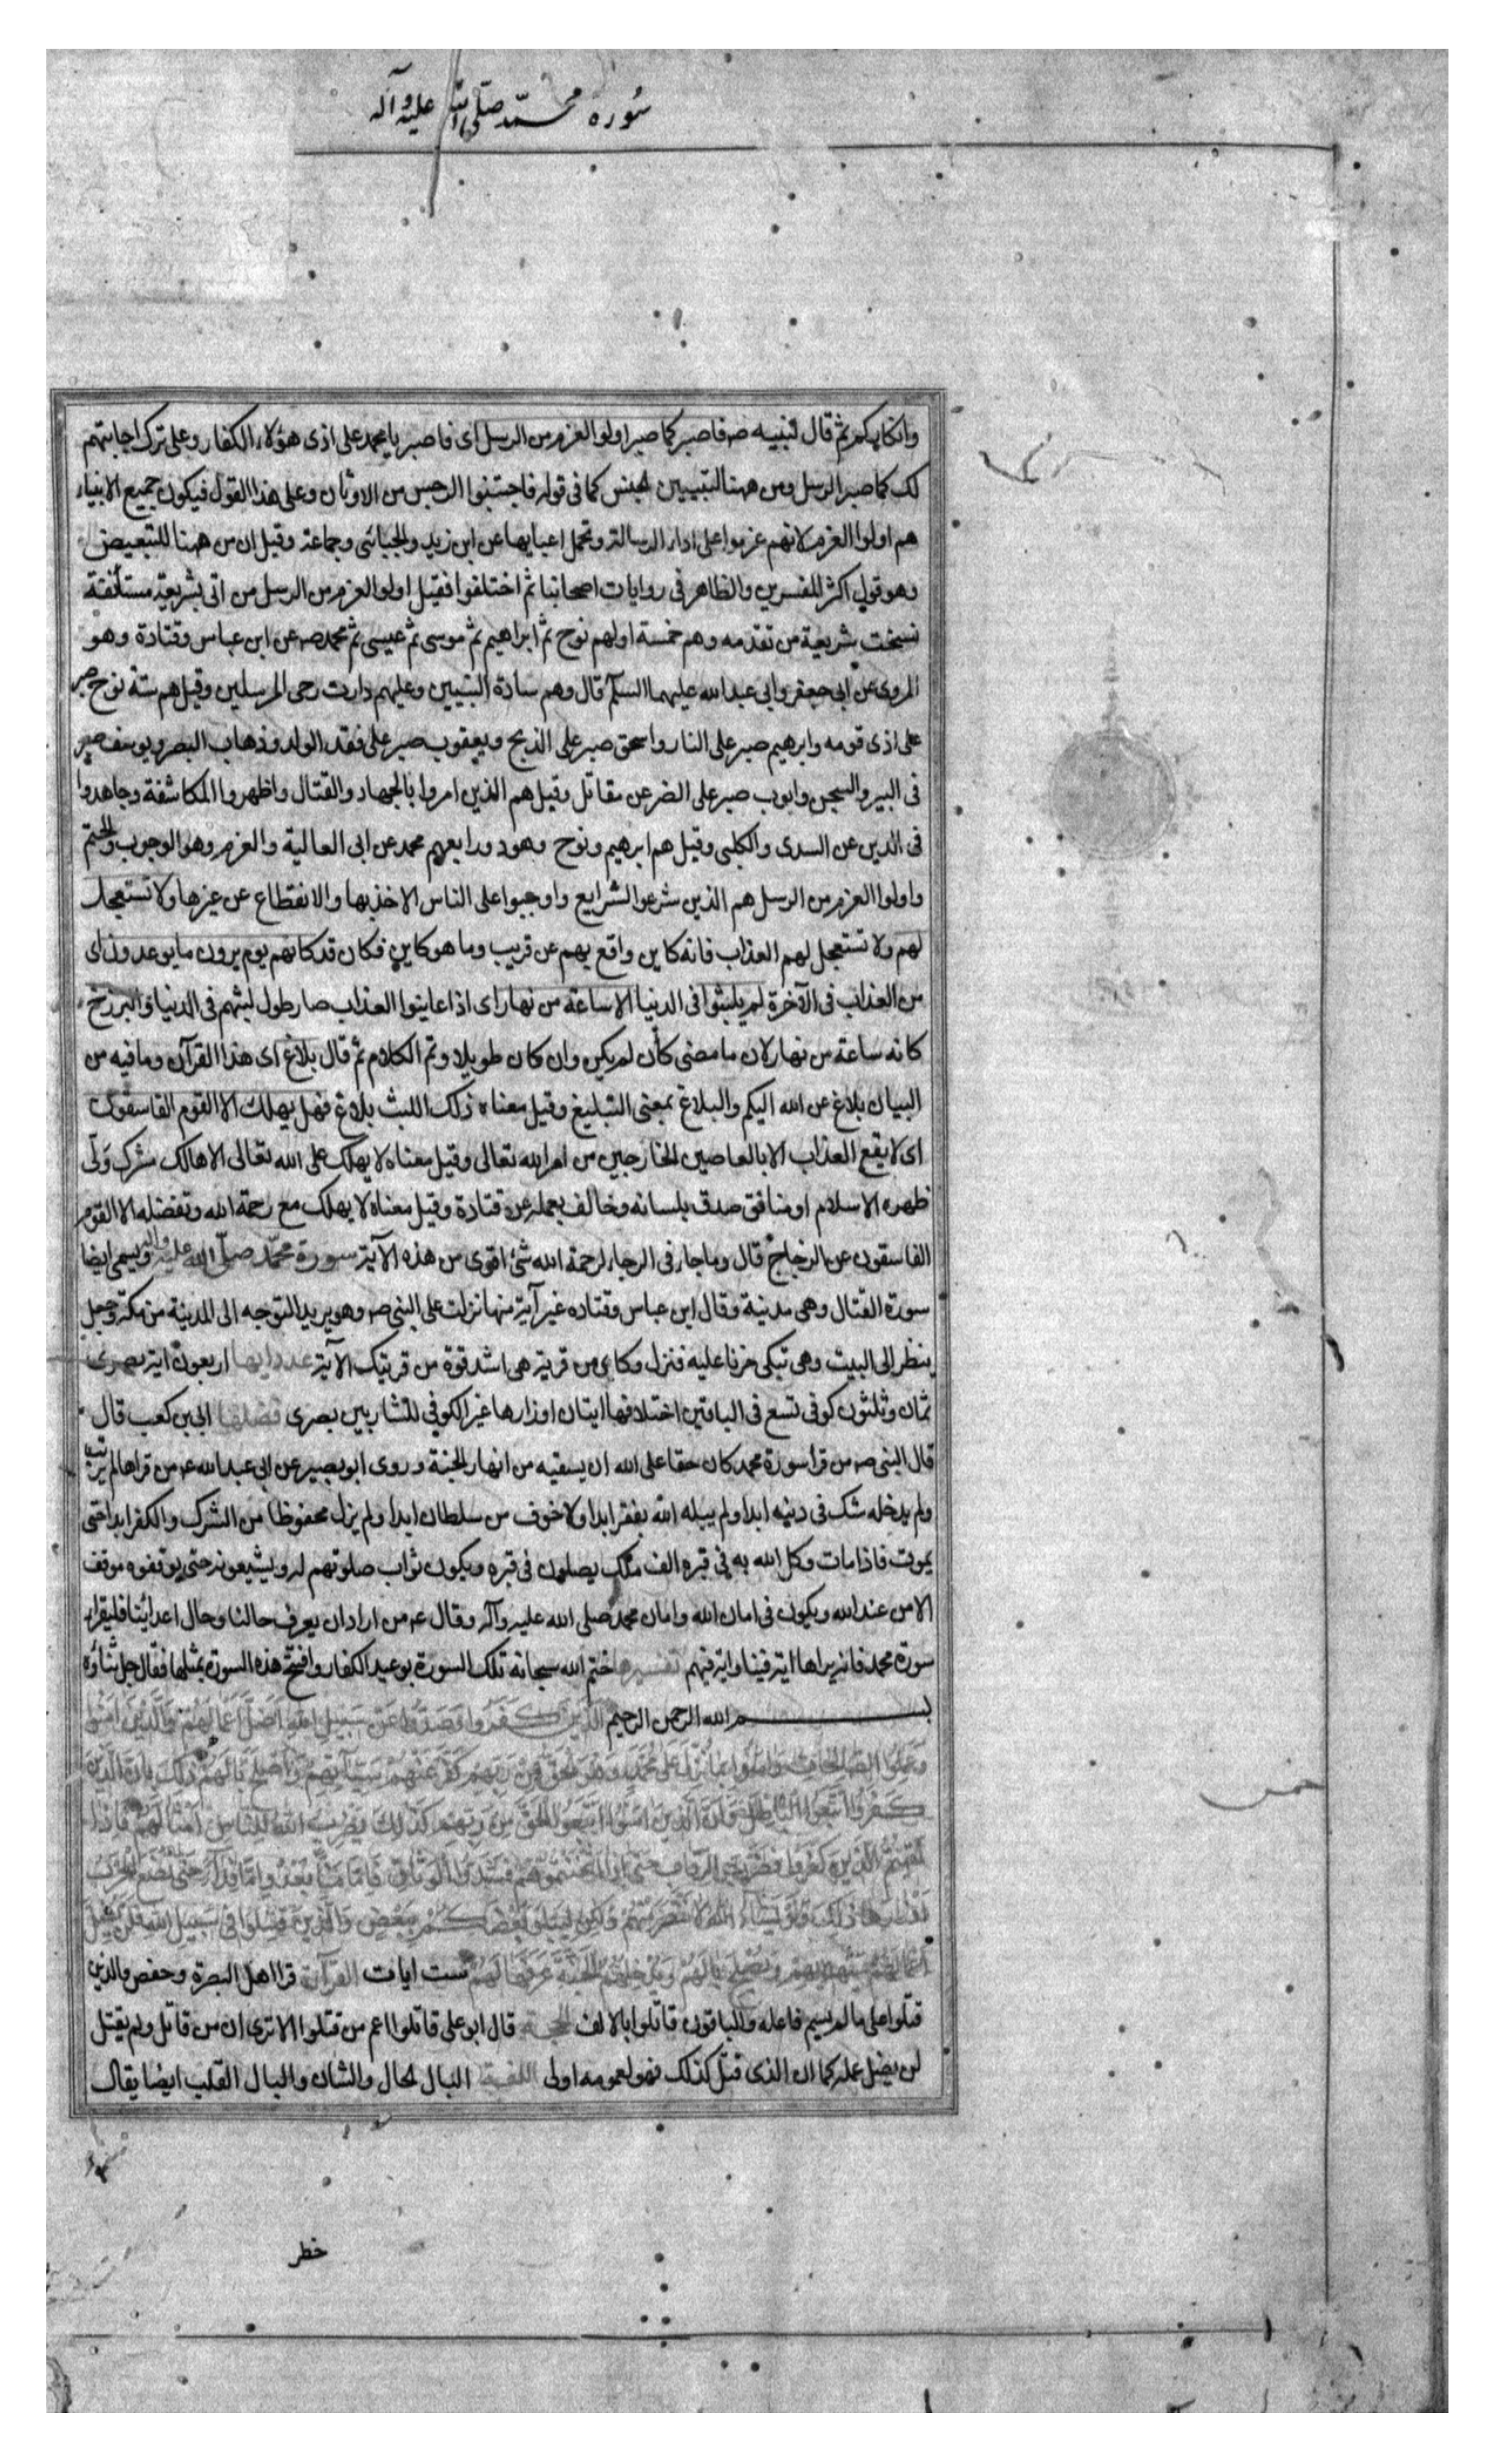 سورة محمّد صلى الله عليه وآله
وانكاركم ثم قال لنبيه صه فاصبر كما صبر اولوا العزم من الرسل اى فاصبر يا محمد على اذى هؤلاء الكفار وعلى ترك اجابتهم
لك كما صبر الرسل ومن ههنا لتبيين الجنس كما فى قوله فاجتنبوا الرجس من الاوثان وعلى هذا القول فيكون جميع الانبياء
هم اولوا العزم لانهم عزموا على اداء الرسالة وتحمل اعبايها عن ابن زيد والجبائى وجماعة وقيل ان من ههنا للتبعيض
وهو قول اكثر المفسرين والظاهر فى روايات اصحابنا ثم اختلفوا فقيل اولو العزم من الرسل من اتى بشريعة مستأنفة
نسخت شريعة من تقدمه وهم خمسة اولهم نوح ثم ابراهيم ثم موسى ثم عيسى ثم محمد صه عن ابن عباس وقتادة وهو
المروى عن ابى جعفر وابى عبد الله عليهما السلم قال وهم سادة النبيين وعليهم دارت رحى المرسلين وقيل هم ستة نوح صبر
على اذى قومه وابرهيم صبر على النار واسحق صبر على الذبح ويعقوب صبر على فقد الولد وذهاب البصر ويوسف صبر
فى البير والسجن وايوب صبر على الضر عن مقاتل وقيل هم الذين امروا بالجهاد والقتال واظهروا المكاشفة وجاهدوا
فى الدين عن السدى والكلبى وقيل هم ابرهيم ونوح وهود ورابعهم محمد عن ابى العالية والعزم وهو الوجوب والحتم
واولوا العزم من الرسل هم الذين شرعوا الشرايع واوجبوا على الناس الاخذ بها والانقطاع عن غيرها ولا تستعجل
لهم ولا تستعجل لهم العذاب فانه كاين واقع بهم عن قريب وما هو كاين فكان قد كانهم يوم يرون ما يوعدون اى
من العذاب فى الآخرة لم يلبثوا فى الدنيا الا ساعة من نهار اى اذا عاينوا العذاب صار طول لبثهم فى الدنيا والبرزخ
كانه ساعة من نهار لان ما مضى كأن لم يكن وان كان طويلا وتم الكلام ثم قال بلاغ اى هذا القرآن وما فيه من
البيان بلاغ عن الله اليكم والبلاغ بمعنى التبليغ وقيل معناه ذلك اللبث بلاغ فهل يهلك الا القوم الفاسقون
اى لا يقع العذاب الا بالعاصين الخارجين من امر الله تعالى وقيل معناه لا يهلك على الله تعالى الا هالك مشرك ولّى
ظهره الاسلام او منافق صدق بلسانه وخالف بعمله عن قتادة وقيل معناه لا يهلك مع رحمة الله وتفضله الا القوم
الفاسقون عن الزجاج قال وما جاء فى الرجاء لرحمة الله شئ اقوى من هذه الآية سورة محمّد صلّى الله عليه واله ويسمى ايضا
سورة القتال وهى مدنية وقال ابن عباس وقتاده غير آية منها نزلت على النبى صه وهو يريد التوجه الى المدينة من مكة وجعل
ينظر الى البيت وهى تبكى حزنا عليه فنزل وكاى من قرية هى اشد قوة من قريتك الآية عدد ايها اربعون اية بصرى
ثمان وثلثون كوفى تسع فى الباقين اختلافها ايتان اوزارها غير الكوفى للشاربين بصرى فضلها ابى بن كعب قال
قال النبى صه من قرا سورة محمد كان حقا على الله ان يسقيه من انهار الجنة وروى ابو بصير عن ابى عبد الله عه من قراها لم يرتب
ولم يدخله شك فى دينه ابدا ولم يبله الله بفقر ابدا ولا خوف من سلطان ابدا ولم يزل محفوظا من الشرك والكفر ابدا حتى
يموت فاذا مات وكل الله به فى قبره الف ملك يصلون فى قبره ويكون ثواب صلوتهم له ويشيعونه حتى يوقفوه موقف
الامن عند الله ويكون فى امان الله وامان محمد صلى الله عليه وآله وقال عه من اراد ان يعرف حالنا وحال اعدائنا فليقرا
سورة محمد فانه يراها اية فينا واية فيهم تفسيرها ختم الله سبحانه تلك السورة بوعيد الكفار وافتتح هذه السورة بمثلها فقال جل ثناؤه
بسم الله الرحمن الرحيم الَّذِينَ كَفَرُوا وَصَدُّوا عَنْ سَبِيلِ اللهِ اَضَلَّ اَعْمَالَهُمْ وَالَّذِينَ آمَنُوا
وَعَمِلُوا الصَّالِحَاتِ وَآمَنُوا بِمَا نُزِّلَ عَلَى مُحَمَّدٍ وَهُوَ الْحَقُّ مِنْ رَبِّهِمْ كَفَّرَ عَنْهُمْ سَيِّئَاتِهِمْ وَاَصْلَحَ بَالَهُمْ ذَلِكَ بِاَنَّ الَّذِينَ
كَفَرُوا اتَّبَعُوا الْبَاطِلَ وَاَنَّ الَّذِينَ آمَنُوا اتَّبَعُوا الْحَقَّ مِنْ رَبِّهِمْ كَذَلِكَ يَضْرِبُ اللهُ لِلنَّاسِ اَمْثَالَهُمْ فَاِذَا
لَقِيتُمُ الَّذِينَ كَفَرُوا فَضَرْبَ الرِّقَابِ حَتَّى اِذَا اَثْخَنْتُمُوهُمْ فَشُدُّوا الْوَثَاقَ فَاِمَّا مَنًّا بَعْدُ وَاِمَّا فِدَاءً حَتَّى تَضَعَ الْحَرْبُ
اَوْزَارَهَا ذَلِكَ وَلَوْ يَشَاءُ اللهُ لَانْتَصَرَ مِنْهُمْ وَلَكِنْ لِيَبْلُوَ بَعْضَكُمْ بِبَعْضٍ وَالَّذِينَ قُتِلُوا فِى سَبِيلِ اللهِ فَلَنْ يُضِلَّ
اَعْمَالَهُمْ سَيَهْدِيهِمْ وَيُصْلِحُ بَالَهُمْ وَيُدْخِلُهُمُ الْجَنَّةَ عَرَّفَهَا لَهُمْ ست ايات القرآة قرا اهل البصرة وحفص والذين
قتلوا على ما لم يسم فاعله والباقون قاتلوا بالالف الحجة قال ابو على قاتلوا اعم من قتلوا الا ترى ان من قاتل ولم يقتل
لن يضل عمله كما ان الذى قتل كذلك فهو لعمومه اولى اللغة البال الحال والشان والبال القلب ايضا يقال
خطر